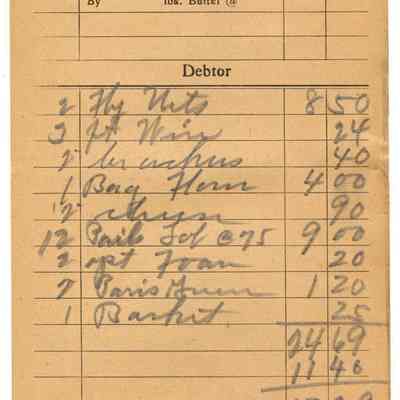 By lbs. Butter @
Debtor
2 Fly Nets 8 50
3 ft Wire 24
2 40
1 Bag Flour 4 00
2 90
12 Pails @75 9 00
2 20
2 Paris Green 1 20
1 Basket 25
24 69
11 46